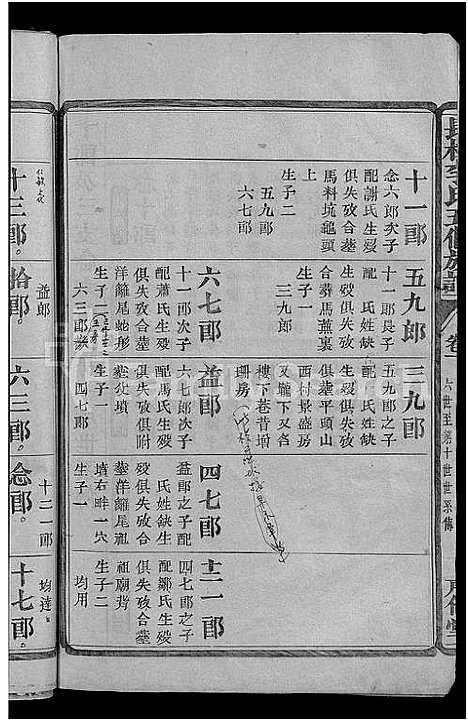 長林李氏五修族譜
卷
六世至第十世世系傳
十一郎
念六郎次子
配謝氏生殁
俱失攷合墓
馬料坑龜頭
上
生子二
五九郎
六七郎
五九郎
十一郎長子
配 氏姓缺
生殁俱失攷
合葬馬蕉裹
生子一
三九郎
三九郎
五九郎之子
配 氏姓缺
俱塟平頭山
西村景盛房
又壠下弓
樓下巷昔埘
珊房
六七郎
十一郎次子
配蕭氏生殁
俱失攷合塟
洋蘺尾虵形
生子二
六三郎
益郎
六七郎次子
配馬氏生殁
俱失攷俱附
塟父墳
生子一
四七郎
四七郎
益郎之子配
氏姓缺生
殁俱失攷合
塟洋蘺尾祖
墳右畔一穴
生子一
十二一郎
十二一郎
四七郎之子
配鄒氏生殁
俱失攷合塟
祖廟背
生子二
均用
均達
十三郎。
拾郎。
益郎
六三郎。
念郎。
十七郎。